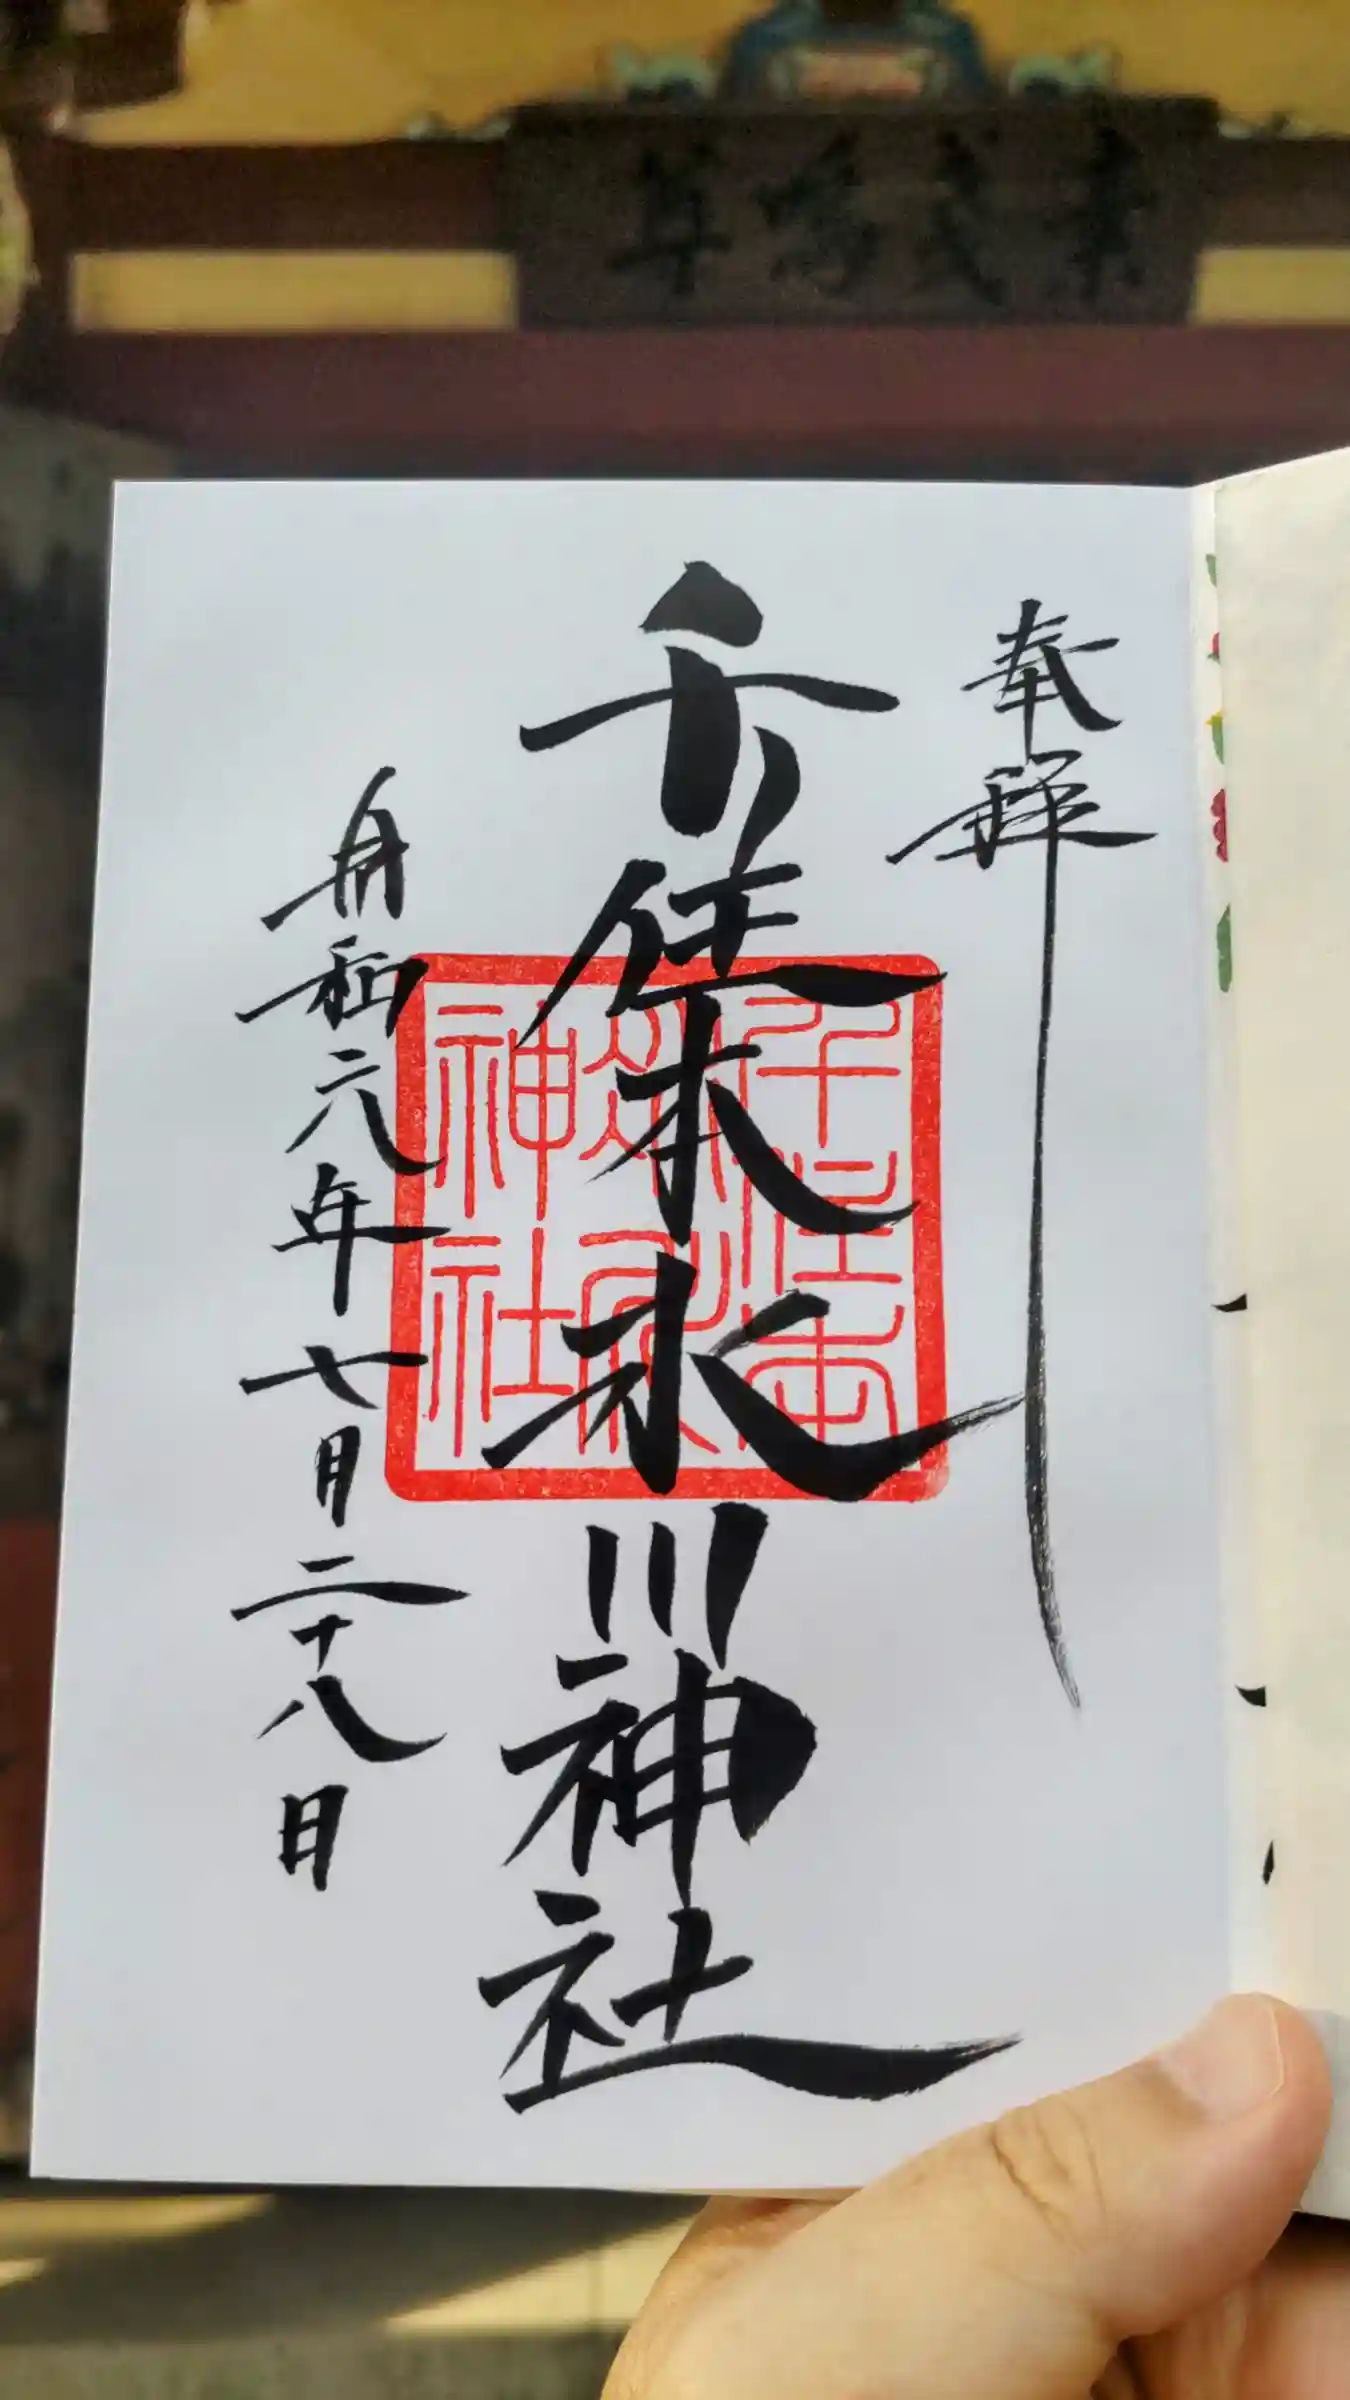 奉拝
千住本氷川神社
令和六年七月二十八日
千住本
氷川
神社